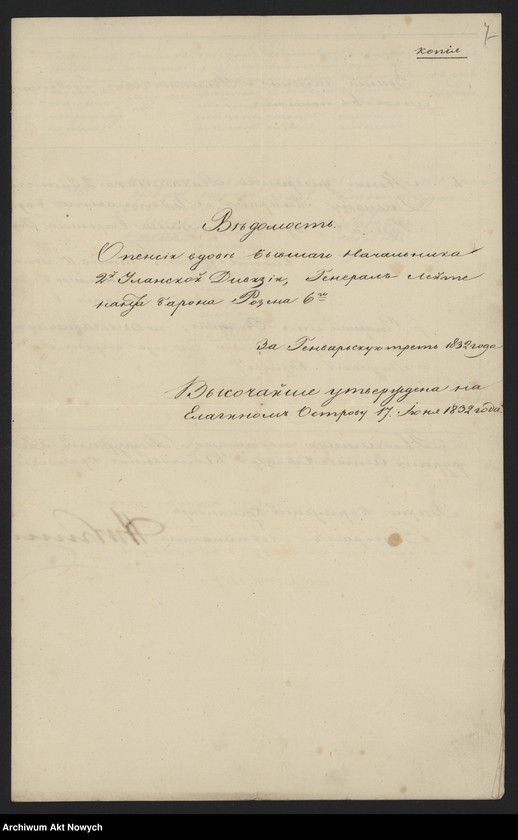 7
Копія
Вѣдомость.
О пенсіи вдовѣ бывшаго Начальника
2й Уланской Дивизіи, Генералъ-Лейте
нанта барона Розена 6го
За Генварьскую треть 1832 года
Высочайше утверждена на
Елагиномъ Острову 17. Іюня 1832 года.
Archiwum Akt Nowych